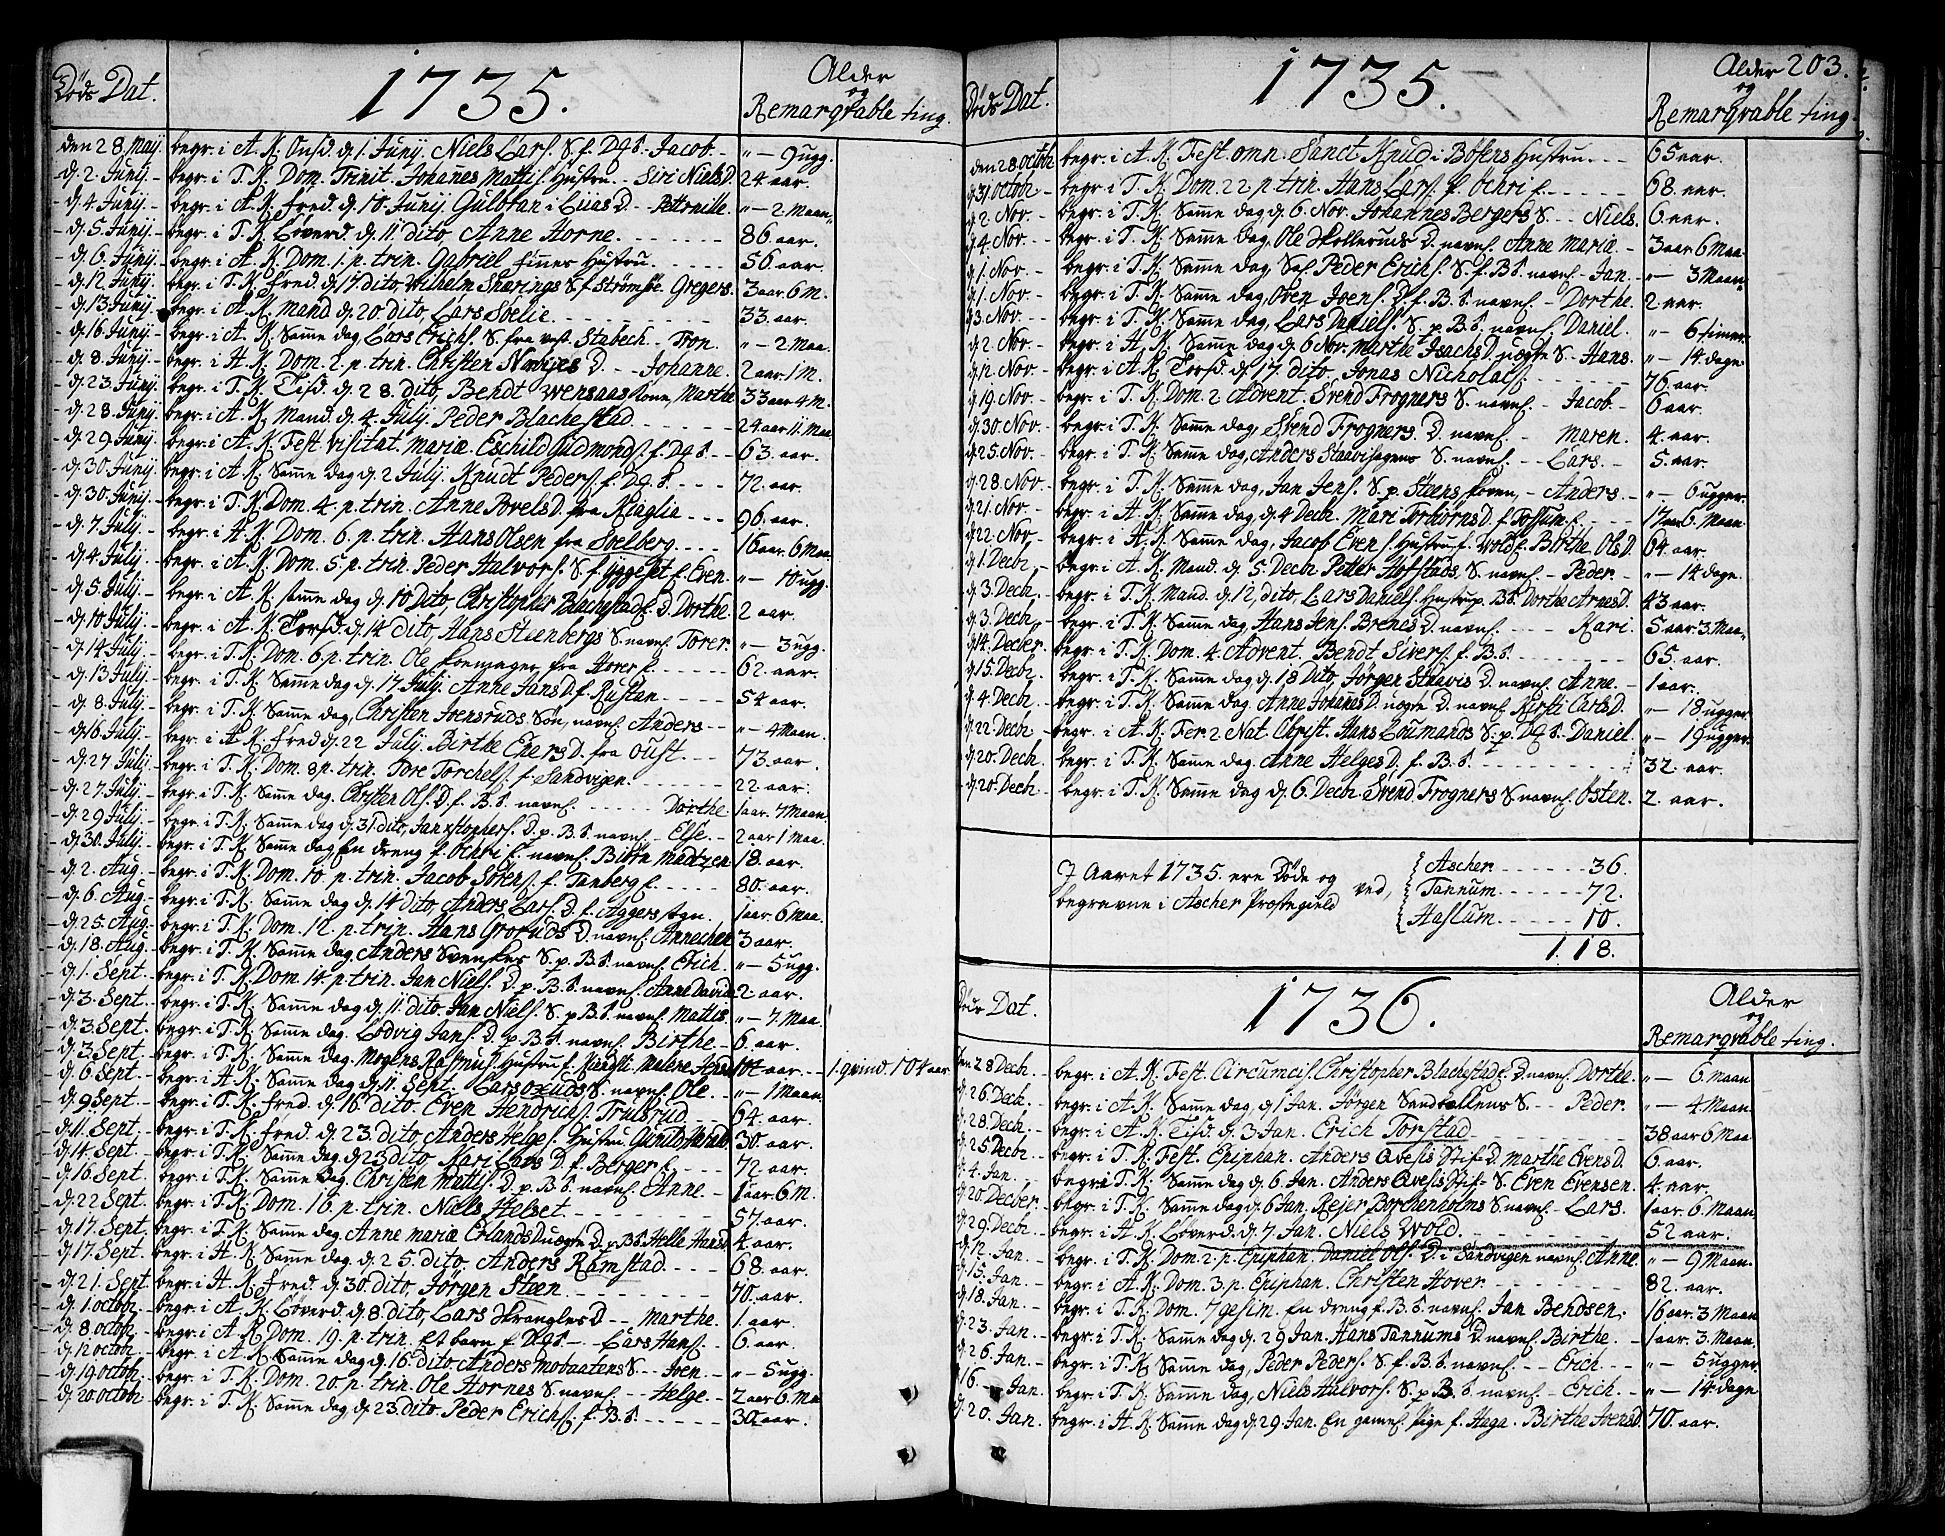 Døds Dat.
1735.
Alder
og
Remarqvable ting.
den 28. May. begr. i A. K. Onsd. d. 1. Junij. Niels Lars. S. f. D.q.S. Jacob. „ — 9 ugg.
d. 2. Junij. begr. i T. K. Dom. Trinit. Johanes Mattis. Hustru - Siri Niels D. 24. aar.
d. 4. Junij. begr. i A. K. fred. d. 10. Junij. Gulbran i D. - Pettronille. „ — 2. Maan.
d. 5. Junij. begr. i T. K. Løverd. d. 11. dito. Anne Horne. 86. aar.
d. 6. Junij. begr. i A. K. Dom. 1. p. trin. Gabriel Hustru 56. aar.
d. 12. Junij. begr. i T. K. fred. d. 17. dito, Wilhelm S. f. Strømsøe. Gregers. 3 aar. 6 M.
d. 13. Junij. begr. i A. K. Mand. d. 20. dito, Lars 33. aar.
d. 16. Junij. begr. i A. K. Samme dag, Lars Erichs. S. fra vest. Stabech. Tron. „ — 2. Maa.
d. 8. Junij. begr. i H. K. Dom. 2. p. trin. Christen D. - Johanne. 2 aar. 1 M.
d. 23. Junij. begr. i T. K. Tisd. d. 28. dito, Bendt Wensaas Kone, Marthe 33 aar 4 M.
d. 28. Junij. begr. i A. K. Mand. d. 4. Julij. Peder Blachestad. 24 aar. 11. Maa
d. 29. Junij. begr. i A. K. Fest. Visitat. Mariæ. Eschild Gudmonds. f. D.q.S. 63. aar.
d. 30. Junij. begr. i A. K. Samme dag d. 2. Julij. Knudt Peders. f. D.q.S. 72. aar.
d. 30. Junij. begr. i T. K. Dom. 4. p. trin. Anne Povels D. fra 96. aar.
d. 7. Julij. begr. i H. K. Dom. 6. p. trin. Hans Olsen fra Solberg. 16 aar. 6 Maa
d. 4. Julij. begr. i A. K. Dom. 5. p. trin. Peder Halvors. S. f. f. Even. „ — 10 ugg.
d. 5. Julij. begr. i A. K. samme dag d. 10 Dito, Christopher Blachestad D. Dorthe 2 aar.
d. 10. Julij. begr. i A. K. Torsd. d. 14. dito, Hans Steenbergs S. navnl. Torer. „ — 3 ugg.
d. 14. Julij. begr. i T. K. Dom. 6. p. trin. Ole skomager fra 62. aar.
d. 13. Julij. begr. i T. K. Samme dag d. 17. Julij. Anne Jans D. f. Rustan 54 aar.
d. 8. Julij. begr. i T. K. Samme dag, Christen Joensruds. Søn, navnl. Anders „ — 4 Maan.
d. 16. Julij. begr. i A. K. fred. d. 22. Julij. Birthe Ehers D. fra Oust. 73. aar.
d. 27. Julij. begr. i T. K. Dom. 8 p. trin. Tore Torchels. f. Sandvigen 22 aar.
d. 27. Julij. begr. i T. K. Samme dag. Christen Ols. D. f. B. S. navnl. Dorthe 1 aar. 7 Maan.
d. 29. Julij. begr. i T. K. Samme dag d. 31. dito, Jan D. p. B. S. navnl. - Else. 2 aar 1 Maa.
d. 30. Julij. begr. i T. K. Samme dag, En dreng f. Ochri navnl. Biørn Madtzen 18. aar.
d. 2. Aug. begr. i T. K. Dom. 10. p. trin. Jacob Sørens. f. Tanberg 80. aar.
d. 6. Aug. begr. i T. K. Samme dag d. 14 dito, Anders Lars. D. f. Aggers sogn. 1 aar. 6 Maa.
d. 25. Aug. begr. i T. K. Dom. 12. p. trin. Hans Groruds D. navnl. Annechen 3 aar.
d. 18. Aug. begr. i T. K. Samme dag Anders Svenskes S. p. B. S. navnl. Erich. „ — 5 ugg.
d. 1. Sept. begr. i T. K. Dom. 14. p. trin. Jan Niels. D. p. B. S. navnl. Anne David 2 aar.
d. 3. Sept. begr. i T. K. Samme dag d. 11. dito. Jan Niels. S. p. B. S. navnl. Mattis „ — 7. Maa.
d. 3. Sept. begr. i T. K. Samme dag. Lodvig Jans. D. p. B. S. navnl. Birthe. 6. aar.
d. 3. Sept. begr. i T. K. Samme dag. Mogens Rasmus. Hustru f. Malene 104 aar. 1. qvind 104 aar.
d. 6. Sept. begr. i H. K. Samme dag d. 11. Sept. Lars S. navnl. Ole „ — 1 Maan
d. 9 Sept. begr. i T. K. fred. d. 16. dito. Even Hendrichs. Trulsrud 64. aar.
d. 11. Sept. begr. i T. K. fred. d. 23. dito, Anders Helges. Hustru. Gunild 30. aar.
d. 14. Sept. begr. i T. K. Samme dag. d. 23 dito, Mari Lars D. f. Berger 72. aar.
d. 16. Sept. begr. i T. K. Samme dag. Christen Mattis. D. p. B. S. navnl. Anne 1 aar. 6. M.
d. 22. Sept. begr. i T. K. Dom. 16. p. trin. Niels Helset 57. aar.
d. 17. Sept. begr. i T. K. Samme dag. Anne Maria Erlands D. uægte D. p. B. S. Helle Hans D. 4. aar.
d. 17. Sept. begr. i H. K. Samme dag d. 25. dito, Anders Ramstad 68. aar.
d. 21. Sept. begr. i H. K. fred. d. 30. dito, Jørgen Steen 70. aar
d. 1. octob. begr. i A. K. Løverd. d. 8. dito, Lars D — Marthe. 1. aar.
d. 8. octob. begr. i A. K. Dom. 19. p. trin. Et barn f. D.q.S. — Lars Hans. 6 aar.
d. 12. octob. begr. i A. K. Samme dag d. 16. dito, Anders S — Iven. „ — 5 ugg.
d. 19. octob. begr. i T. K. Dom. 20. p. trin. Ole Hornes S. navnl. — Helge. 2 aar 6. Ma
d. 20. octob. begr. i T. K. Samme dag, d. 23. dito. Peder Erichs. f. B. S. 30. aar.
Døds Dat.
1735.
Alder 203.
og
Remarqvable ting.
den 28. octob. begr. i A. K. Fest. omn. Sanct. Knud i Hustru. 65 aar.
d. 31. octob. begr. i T. K. Dom. 22. p. trin. Hans Lars. f. Ochri 68. aar.
d. 2. Nov. begr. i T. K. Samme dag d. 6. Nov. Johannes Bergers S. — Niels. 6. aar.
d. 4. Nov. begr. i T. K. Samme dag. Ole Skolleruds D. navnl. Anne Maria 3 aar 6 Maa.
d. 1. Nov. begr. i T. K. Samme dag, Peder Erichs. S. f. B. S. navnl. Jan. „ — 3 Maan
d. 1. Nov. begr. i T. K. Samme dag, Iven Ivers. D. f. B. S. navnl. - Dorthe. 2 aar.
d. 3. Nov. begr. i T. K. Samme dag, Lars Daniels. S. p. B. S. navnl. Daniel. „ — 6 timer.
d. 2. Nov. begr. i H. K. Samme dag d. 6 Nov. Marthe Isachs D. uægte S. Hans. „ — 14 dage
d. 12. Nov. begr. i A. K. Torsd. d. 17. dito, Jonas Nicholai 76. aar.
d. 19. Nov. begr. i T. K. Dom. 2. Advent. Svend Frogners S. navnl. - Jacob. 6 aar.
d. 30. Nov. begr. i T. K. Samme dag, Svend Frogners. D. navnl. Maren. 4. aar.
d. 25. Nov. begr. i T. K. Samme dag, Anders S. navnl. — Lars. 5. aar.
d. 28. Nov. begr. i T. K. Samme dag, Jan Jens. S. p. Steens skoven, - Anders. „ — 6 ugger
d. 21. Nov. begr. i H. K. Samme dag, d. 4 Dech. Mari Torbiørns D. f. Fossum 17 aar 6. Maan
d. 22. Nov. begr. i H. K. Samme dag, Jacob Evens. Hustru f. Wold. Birthe Ols D. 64. aar.
d. 1. Dech. begr. i A. K. Mand. d. 5. Dech. Petter Hofstads S. navnl. - Peder. „ — 14 dage.
d. 3. Dech. begr. i T. K. Mand. d. 12, dito, Lars Daniels. Hustru p. B. S. Dorthe Arnes D. 43 aar.
d. 3. Dech. begr. i T. K. Samme dag, Hans Jens. Brenes D. navnl. — Kari. 5 aar. 3. Maa.
d. 14. Decher begr. i T. K. Dom. 4. Advent. Bendt Sivers. f. B. S. 65. aar.
d. 15. Dech. begr. i T. K. Samme dag d. 18 Dito, Jørgen Staavis D. navnl. Anne. 1 aar.
d. 4. Dech. begr. i T. K. Samme dag. Anne Johanes D. uægte D. navnl. Kirsti Carls D. „ — 18 ugger
d. 22. Dech. begr. i A. K. Fer. 2 Nat. Christ. Hans Loumands S. p. D.q.S. Daniel. „ — 19 ugger.
d. 20. Dech. begr. i T. K. Samme dag. Anne Helges D. f. B. S. 32. aar.
d. 20. Dech. begr. i T. K. Samme dag d. 6. Dech. Svend Frogners S. navnl. Østen. 2. aar.
J Aaret 1735. ere Døde og begravne i Ascher Præstegield ved,
Ascher. 36.
Tannum 72.
Haslum 10.
118.
Døds Dat.
1736.
Alder
og
Remarqvable ting.
den 28 Dech. begr. i A. K. Fest. Circumcis. Christopher Blachestad D. navnl. Dorthe. „ — 6. Maan
d. 26. Dech. begr. i A. K. Samme dag, d. 1 Jan. Jørgen S. — Peder. „ — 4. Maan
d. 28. Dech. begr. i A. K. Tisd. d. 3 Jan. Erich Torstad 38 aar 6 Maa
d. 25. Dech. begr. i T. K. Fest. Epiphan. Anders Stif D. Marthe Evens D. 6. aar.
d. 4. Jan. begr. i T. K. Samme dag d. 6. Jan. Anders Stif S. Even Evensen. 4. aar.
d. 20. Decber. begr. i T. K. Samme dag d. 6 Jan. Rejer Borchenholms S. navnl. - Lars. 1 aar. 6. Maan
d. 29. Dech. begr. i H. K. Løverd. d. 7. Jan. Niels Wold 52 aar.
d. 12. Jan. begr. i T. K. Dom. 2. p. Epiphan. Daniel Ols. D. i Sandvigen navnl. Anne. „ — 9 Maan.
d. 15. Jan. begr. i A. K. Dom. 3. p. Epiphan. Christen Hover 82. aar.
d. 18. Jan. begr. i T. K. Dom. 7gesim. En dreng f. B. S. navnl. Jan Bendsen. 16 aar. 3 Maan
d. 23. Jan. begr. i T. K. Samme dag d. 29 Jan. Hans Tannums D. navnl. Birthe. 1 aar. 3. Maan.
d. 26. Jan. begr. i T. K. Samme dag, Peder Peders. S. f. B. S. navnl. — Erich. „ — 5 ugger
d. 16. Jan. begr. i T. K. Samme dag, Niels Halvors. S. p. B. S. navnl. - Erich. „ — 14. dage
d. 20. Jan. begr. i H. K. Samme dag d. 29. Jan. En gammel Pige f. Haga. Birthe Ivers D. 70. aar.